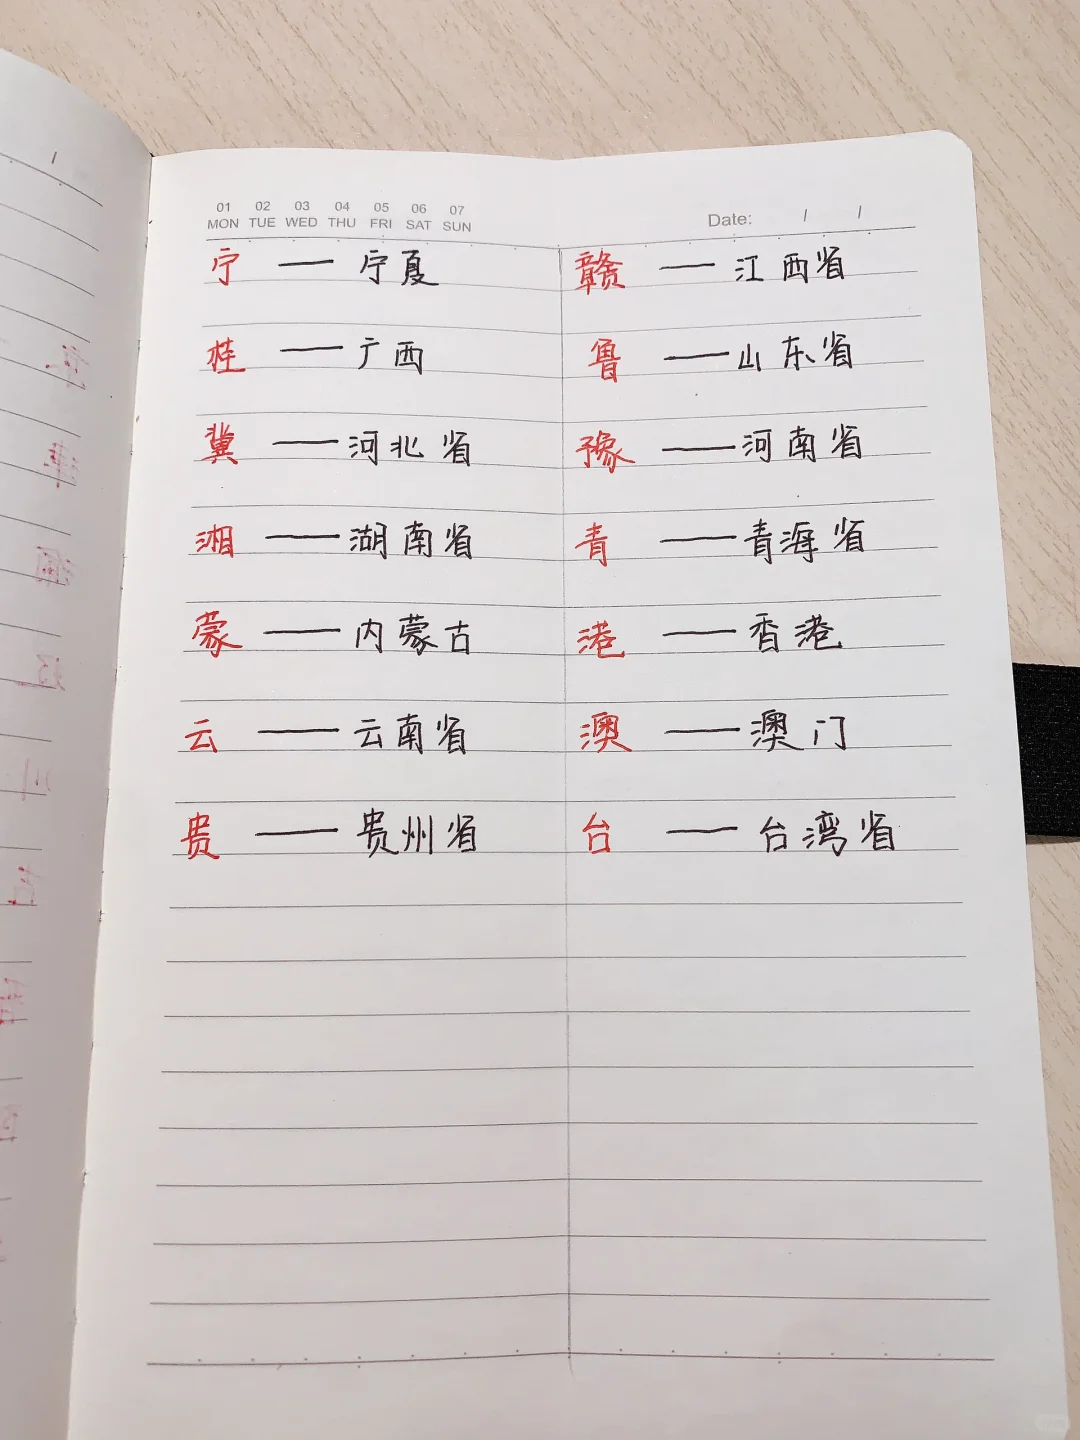 01 02 03 04 05 06 07
MON TUE WED THU FRI SAT SUN
Date: / /
宁 — 宁夏
桂 — 广西
冀 — 河北省
湘 — 湖南省
蒙 — 内蒙古
云 — 云南省
贵 — 贵州省
赣 — 江西省
鲁 — 山东省
豫 — 河南省
青 — 青海省
港 — 香港
澳 — 澳门
台 — 台湾省